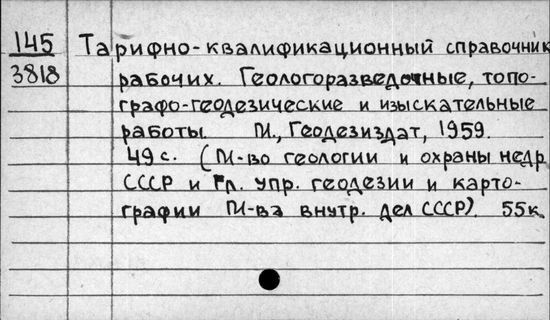 145 Тарифно-квалификационный справочник
3818 рабочих. Геологоразведочные, топо-
графо-геодезические и изыскательные
работы. М., Геодезиздат, 1959.
49 с. (М-во геологии и охраны недр
СССР и Гл. упр. геодезии и карто-
графии М-ва внутр. дел СССР). 55к.